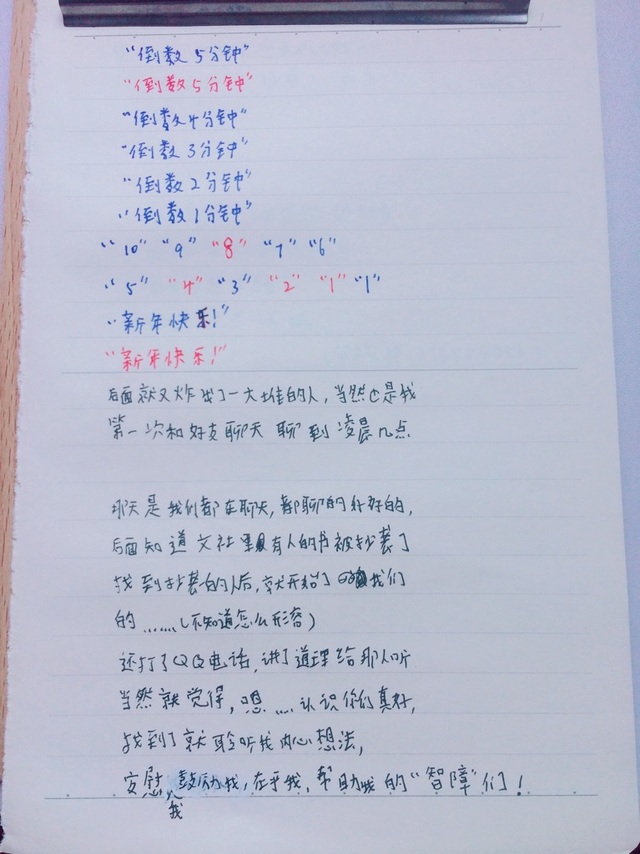 “倒数5分钟”
“倒数5分钟”
“倒数4分钟”
“倒数3分钟”
“倒数2分钟”
“倒数1分钟”
“10” “9” “8” “7” “6”
“5” “4” “3” “2” “1” “1”
“新年快乐!”
“新年快乐!”
后面就又炸出了一大堆的人,当然也是我
第一次和好友聊天 聊到凌晨几点
那天是我们都在聊天,都聊的好好的,
后面知道文社里有人的书被抄袭了
找到抄袭的人后,就开始了我们
的……(不知道怎么形容)
还打了QQ电话,讲了道理给那人听
当然就觉得,嗯……认识你们真好,
找到了就聆听我内心想法,
安慰我,鼓励我,在乎我,帮助我的“智障”们!